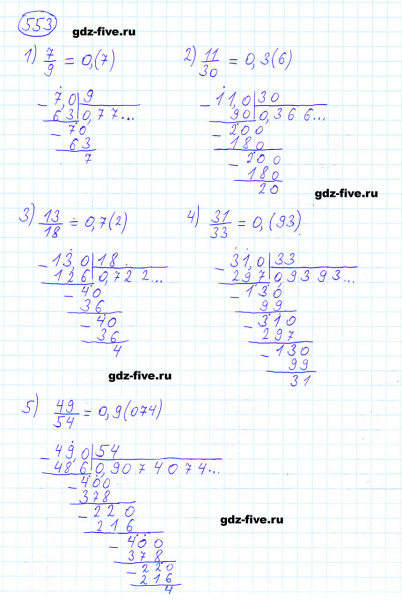 553
gdz-five.ru
1) 7/9 = 0,(7)
2) 11/30 = 0,3(6)
- 7,0 | 9
63 | 0,77...
- 70
63
7
- 11,0 | 30
90 | 0,366...
- 200
180
- 200
180
20
gdz-five.ru
3) 13/18 = 0,7(2)
4) 31/33 = 0,(93)
- 13,0 | 18
126 | 0,722...
- 40
36
- 40
36
4
- 31,0 | 33
297 | 0,9393...
- 130
99
- 310
297
- 130
99
31
gdz-five.ru
5) 49/54 = 0,9(074)
- 49,0 | 54
486 | 0,9074074...
- 400
378
- 220
216
- 400
378
- 220
216
4
gdz-five.ru